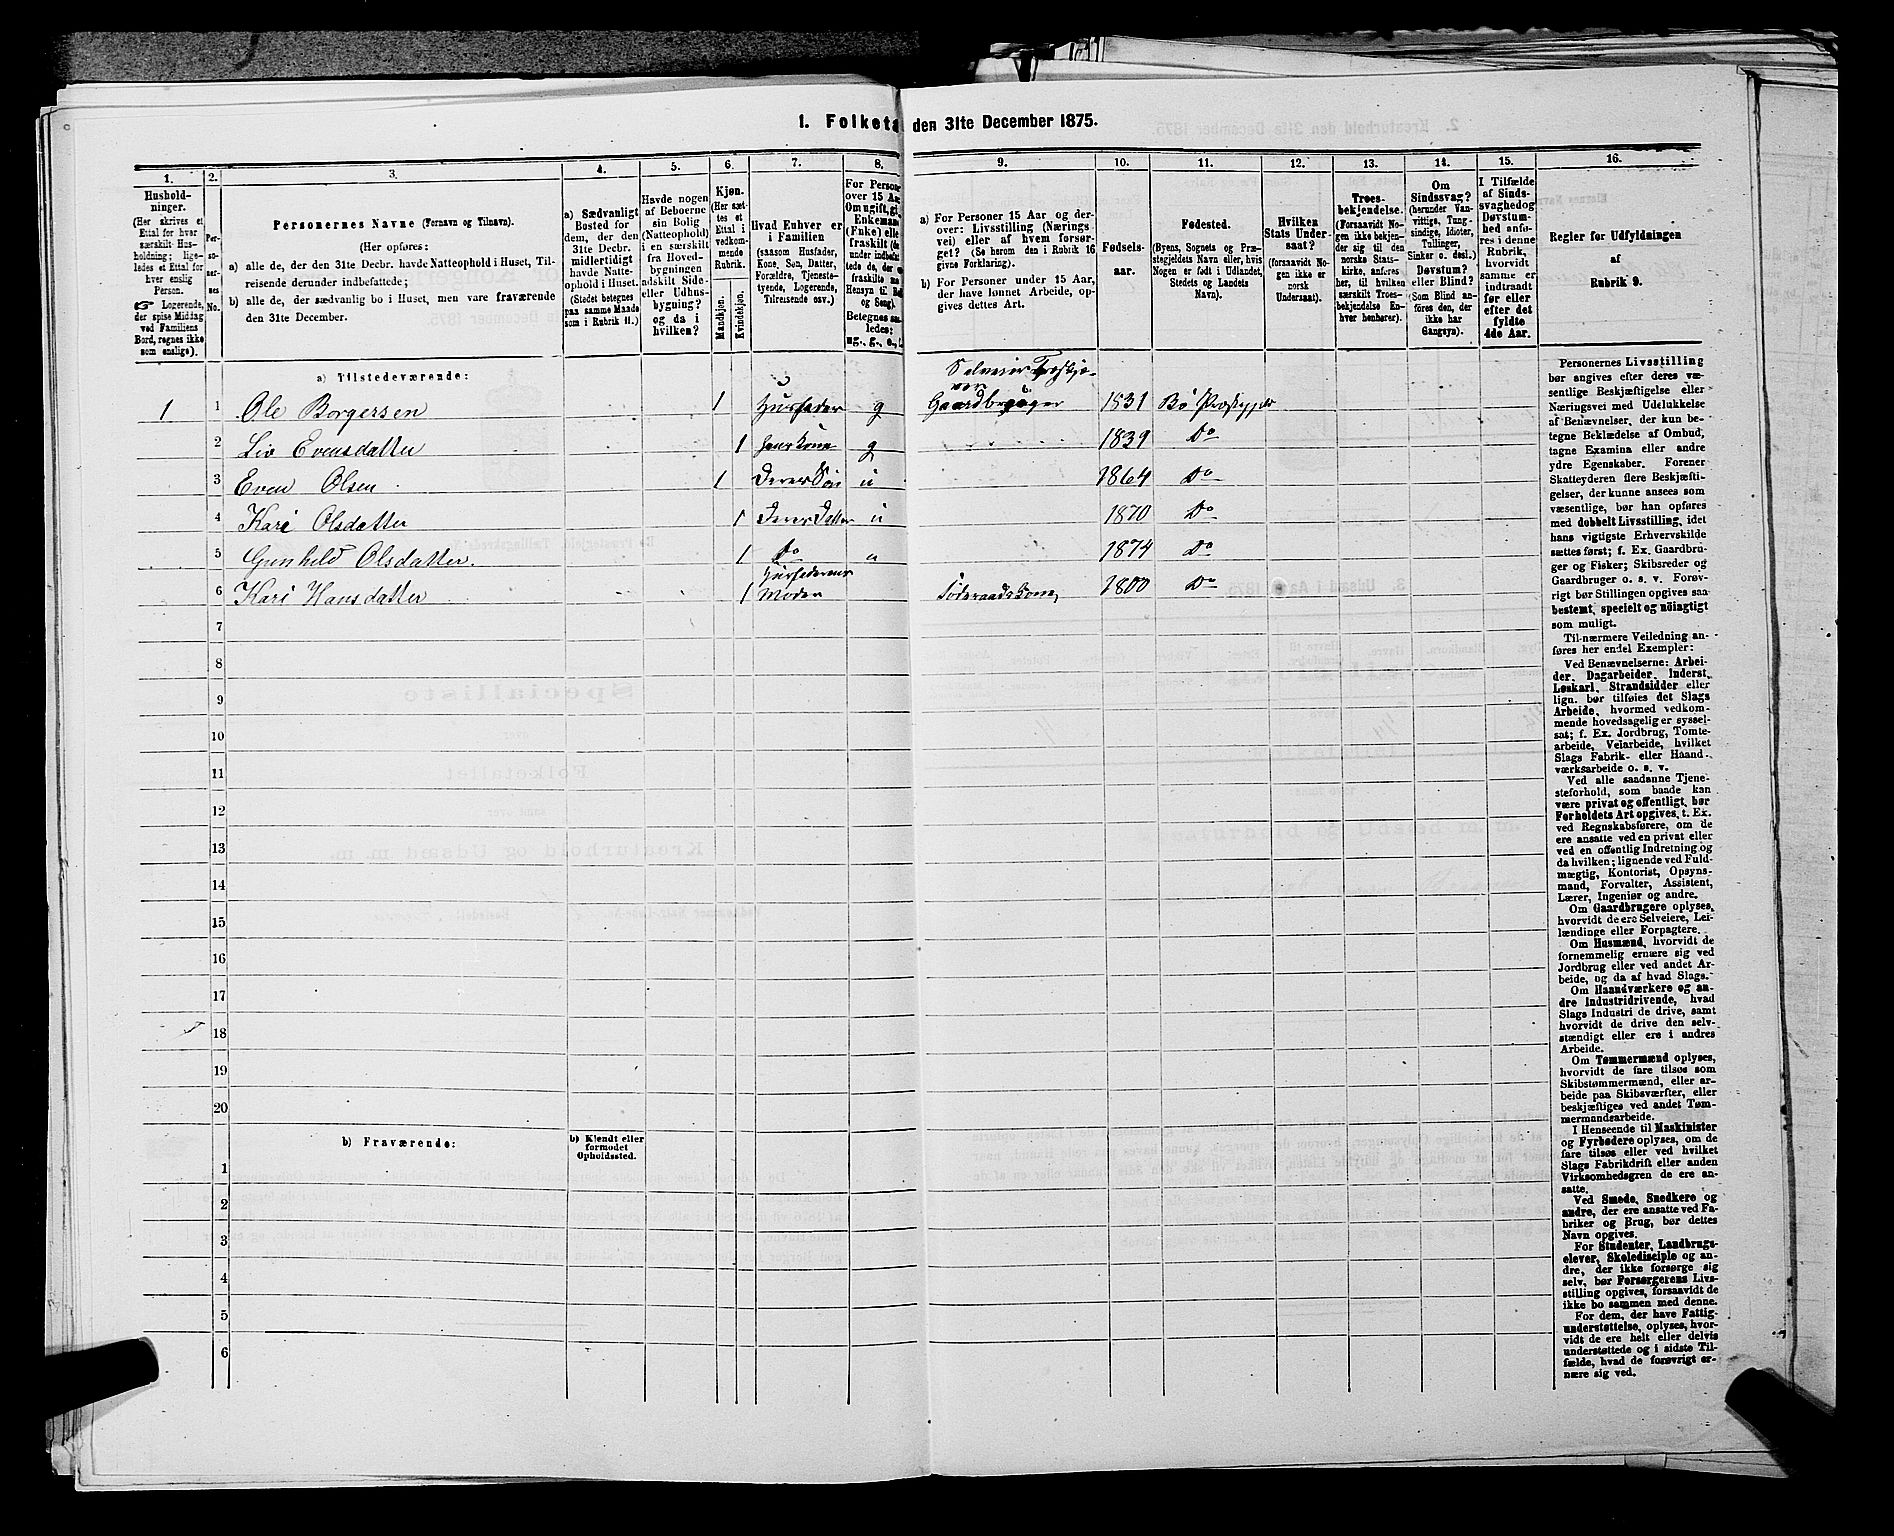 1. Folketa den 31te December 1875.
1.
Hushold-
ninger.
(Her skrives et
Ettal for hver
særskilt Hus-
holdning; lige-
ledes et Ettal for
hver enslig
Person.
☞ Logerende,
der spise Middag
ved Familiens
Bord, regnes ikke
som enslige).
2.
Per-
so-
ner-
nes
No.
3.
Personernes Navne (Fornavn og Tilnavn).
(Her opføres:
a) alle de, der den 31te Decbr. havde Natteophold i Huset, Til-
reisende derunder indbefattede;
b) alle de, der sædvanlig bo i Huset, men vare fraværende
den 31te December.
4.
a) Sædvanligt
Bosted for
dem, der den
31te Decbr.
midlertidigt
havde Natte-
ophold i Huset.
(Stedet betegnes
paa samme Maade
som i Rubrik 11.)
5.
Havde nogen
af Beboerne
sin Bolig
(Natteophold)
i en særskilt
fra Hoved-
bygningen
adskilt Side-
eller Udhus-
bygning?
og da i
hvilken?
6.
Kjøn.
(Her sæt-
tes et
Ettal i
vedkom-
mende
Rubrik.
Mandkjøn.
Kvindekjøn.
7.
Hvad Enhver er
i Familien
(saasom Husfader,
Kone, Søn, Datter,
Forældre, Tjeneste-
tyende, Logerende,
Tilreisende osv.)
8.
For Persone
over 15 Aa
Om ugift, gi
Enkemand
(Enke) elle
fraskilt (de
under indbefat-
tede de, der e
fraskilte me
Hensyn til Bo
og Seng).
Betegnes saa
ledes:
ug., g., e.,
9.
a) For Personer 15 Aar og der-
over: Livsstilling (Nærings-
vei) eller af hvem forsør-
get? (Se herom den i Rubrik 16
givne Forklaring).
b) For Personer under 15 Aar,
der have lønnet Arbeide, op-
gives dettes Art.
10.
Fødsels-
aar.
11.
Fødested.
(Byens, Sognets og Præ-
stegjeldets Navn eller, hvis
Nogen er født i Udlandet,
Stedets og Landets
Navn).
12.
Hvilken
Stats Under-
saat?
(forsaavidt No-
gen ikke er
norsk
Undersaat).
13.
Troes-
bekjendelse.
(Forsaavidt No-
gen ikke bekjen-
der sig til den
norske Stats-
kirke, anføres
her, til hvilken
særskilt Troes-
bekjendelse En-
hver henhører).
14.
Om
Sindssvag?
(herunder Van-
vittige, Tung-
sindige, Idioter,
Tullinger,
Sinker o. desl.)
Døvstum?
eller Blind?
(Som Blind an-
føres den, der
ikke har
Gangsyn).
15.
I Tilfælde
af Sinds-
svaghed og
Døvstum-
hed anfø-
res i denne
Rubrik,
hvorvidt
samme er
indtraadt
før eller
efter det
fyldte
4de Aar.
16.
Regler for Udfyldningen
af
Rubrik 9.
a) Tilstedeværende:
1 1 Ole Borgersen 1 Husfader g Selveier
Gaardbruger 1831 Bø Præstegjeld
2 Liv Evensdatter 1 hans Kone g 1839 Do
3 Even Olsen 1 Deres Søn u 1864 Do
4 Kari Olsdatter 1 Deres Datter u 1870 Do
5 Gunhild Olsdatter. 1 Do u 1874 Do
6 Kari Hansdatter 1 Husfaderens
Moder Føderaadskone, 1800 Do
7
8
9
10
11
12
13
14
15
16
17
18
19
20
b) Fraværende:
b) Kjendt eller
formodet
Opholdssted.
1
2
3
4
5
6
Personernes Livsstilling
bør angives efter deres væ-
sentlige Beskjæftigelse eller
Næringsvei med Udelukkelse
af Benævnelser, der kun be-
tegne Beklædelse af Ombud,
tagne Examina eller andre
ydre Egenskaber. Forener
Skatteyderen flere Beskjæfti-
gelser, der kunne ansees som
væsentlige, bør han opføres
med dobbelt Livsstilling, idet
hans vigtigste Erhvervskilde
sættes først; f. Ex. Gaardbru-
ger og Fisker; Skibsreder og
Gaardbruger o. s. v. Forøv-
rigt bør Stillingen opgives saa
bestemt, specielt og nöiagtigt
som muligt.
Til nærmere Veiledning an-
føres her endel Exempler:
Ved Benævnelserne: Arbei-
der, Dagarbeider, Inderst,
Løskarl, Strandsidder eller
lign. bør tilføies det Slags
Arbeide, hvormed vedkom-
mende hovedsagelig er syssel-
sat; f. Ex. Jordbrug, Tomte-
arbeide, Veiarbeide, hvilket
Slags Fabrik- eller Haand-
værksarbeide o. s. v.
Ved alle saadanne Tjene-
steforhold, som baade kan
være privat og offentligt, bør
Forholdets Art opgives, t. Ex.
ved Regnskabsførere, om de
ere ansatte ved en privat eller
ved en offentlig Indretning og
da hvilken; lignende ved Fuld-
mægtig, Kontorist, Opsyns-
mand, Forvalter, Assistent,
Lærer, Ingeniør og andre.
Om Gaardbrugere oplyses,
hvorvidt de ere Selveiere, Lei-
lændinge eller Forpagtere.
Om Husmænd, hvorvidt de
fornemmelig ernære sig ved
Jordbrug eller ved andet Ar-
beide, og da af hvad Slags.
Om Haandværkere og an-
dre Industridrivende, hvad
Slags Industri de drive, samt
hvorvidt de drive den selv-
stændigt eller ere i andres
Arbeide.
Om Tømmermænd oplyses,
hvorvidt de fare tilsøs som
Skibstømmermænd, eller ar-
beide paa Skibsværfter, eller
beskjæftiges ved andet Tøm-
mermandsarbeide.
I Henseende til Maskinister
og Fyrbødere oplyses, om de
fare tilsøs eller ved hvilket
Slags Fabrikdrift eller anden
Virksomhedsgren de ere an-
satte.
Ved Smede, Snedkere og
andre, der ere ansatte ved Fa-
briker og Brug, bør dettes
Navn opgives.
For Studenter, Landbrugs-
elever, Skoledisciple og an-
dre, der ikke forsørge sig
selv, bør Forsørgerens Livs-
stilling opgives, forsaavidt de
ikke bo sammen med denne.
For dem, der have Fattig-
understøttelse, oplyses, hvor-
vidt de ere helt eller delvis
understøttede og i sidste Til-
fælde, hvad de forøvrigt er-
nære sig ved.